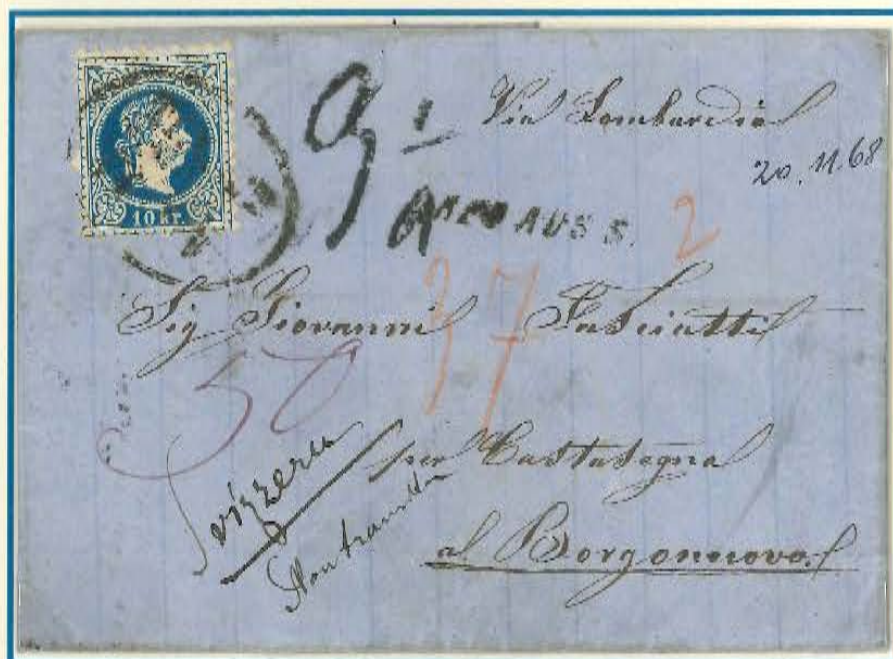 Via Lombardia
20.11.68
10 Kr.
AUS S.
2
37
Sig Giovanni Fasciatti
50
Svizzera
per Castasegna
al Borgonuovo.